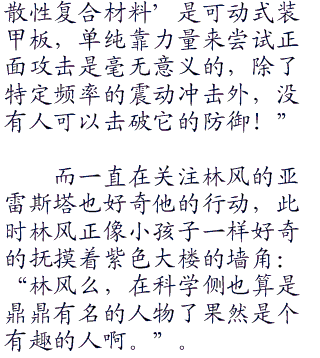 散性复合材料’是可动式装
甲板，单纯靠力量来尝试正
面攻击是毫无意义的，除了
特定频率的震动冲击外，没
有人可以击破它的防御！”
而一直在关注林风的亚
雷斯塔也好奇他的行动，此
时林风正像小孩子一样好奇
的抚摸着紫色大楼的墙角：
“林风么，在科学侧也算是
鼎鼎有名的人物了果然是个
有趣的人啊。”。